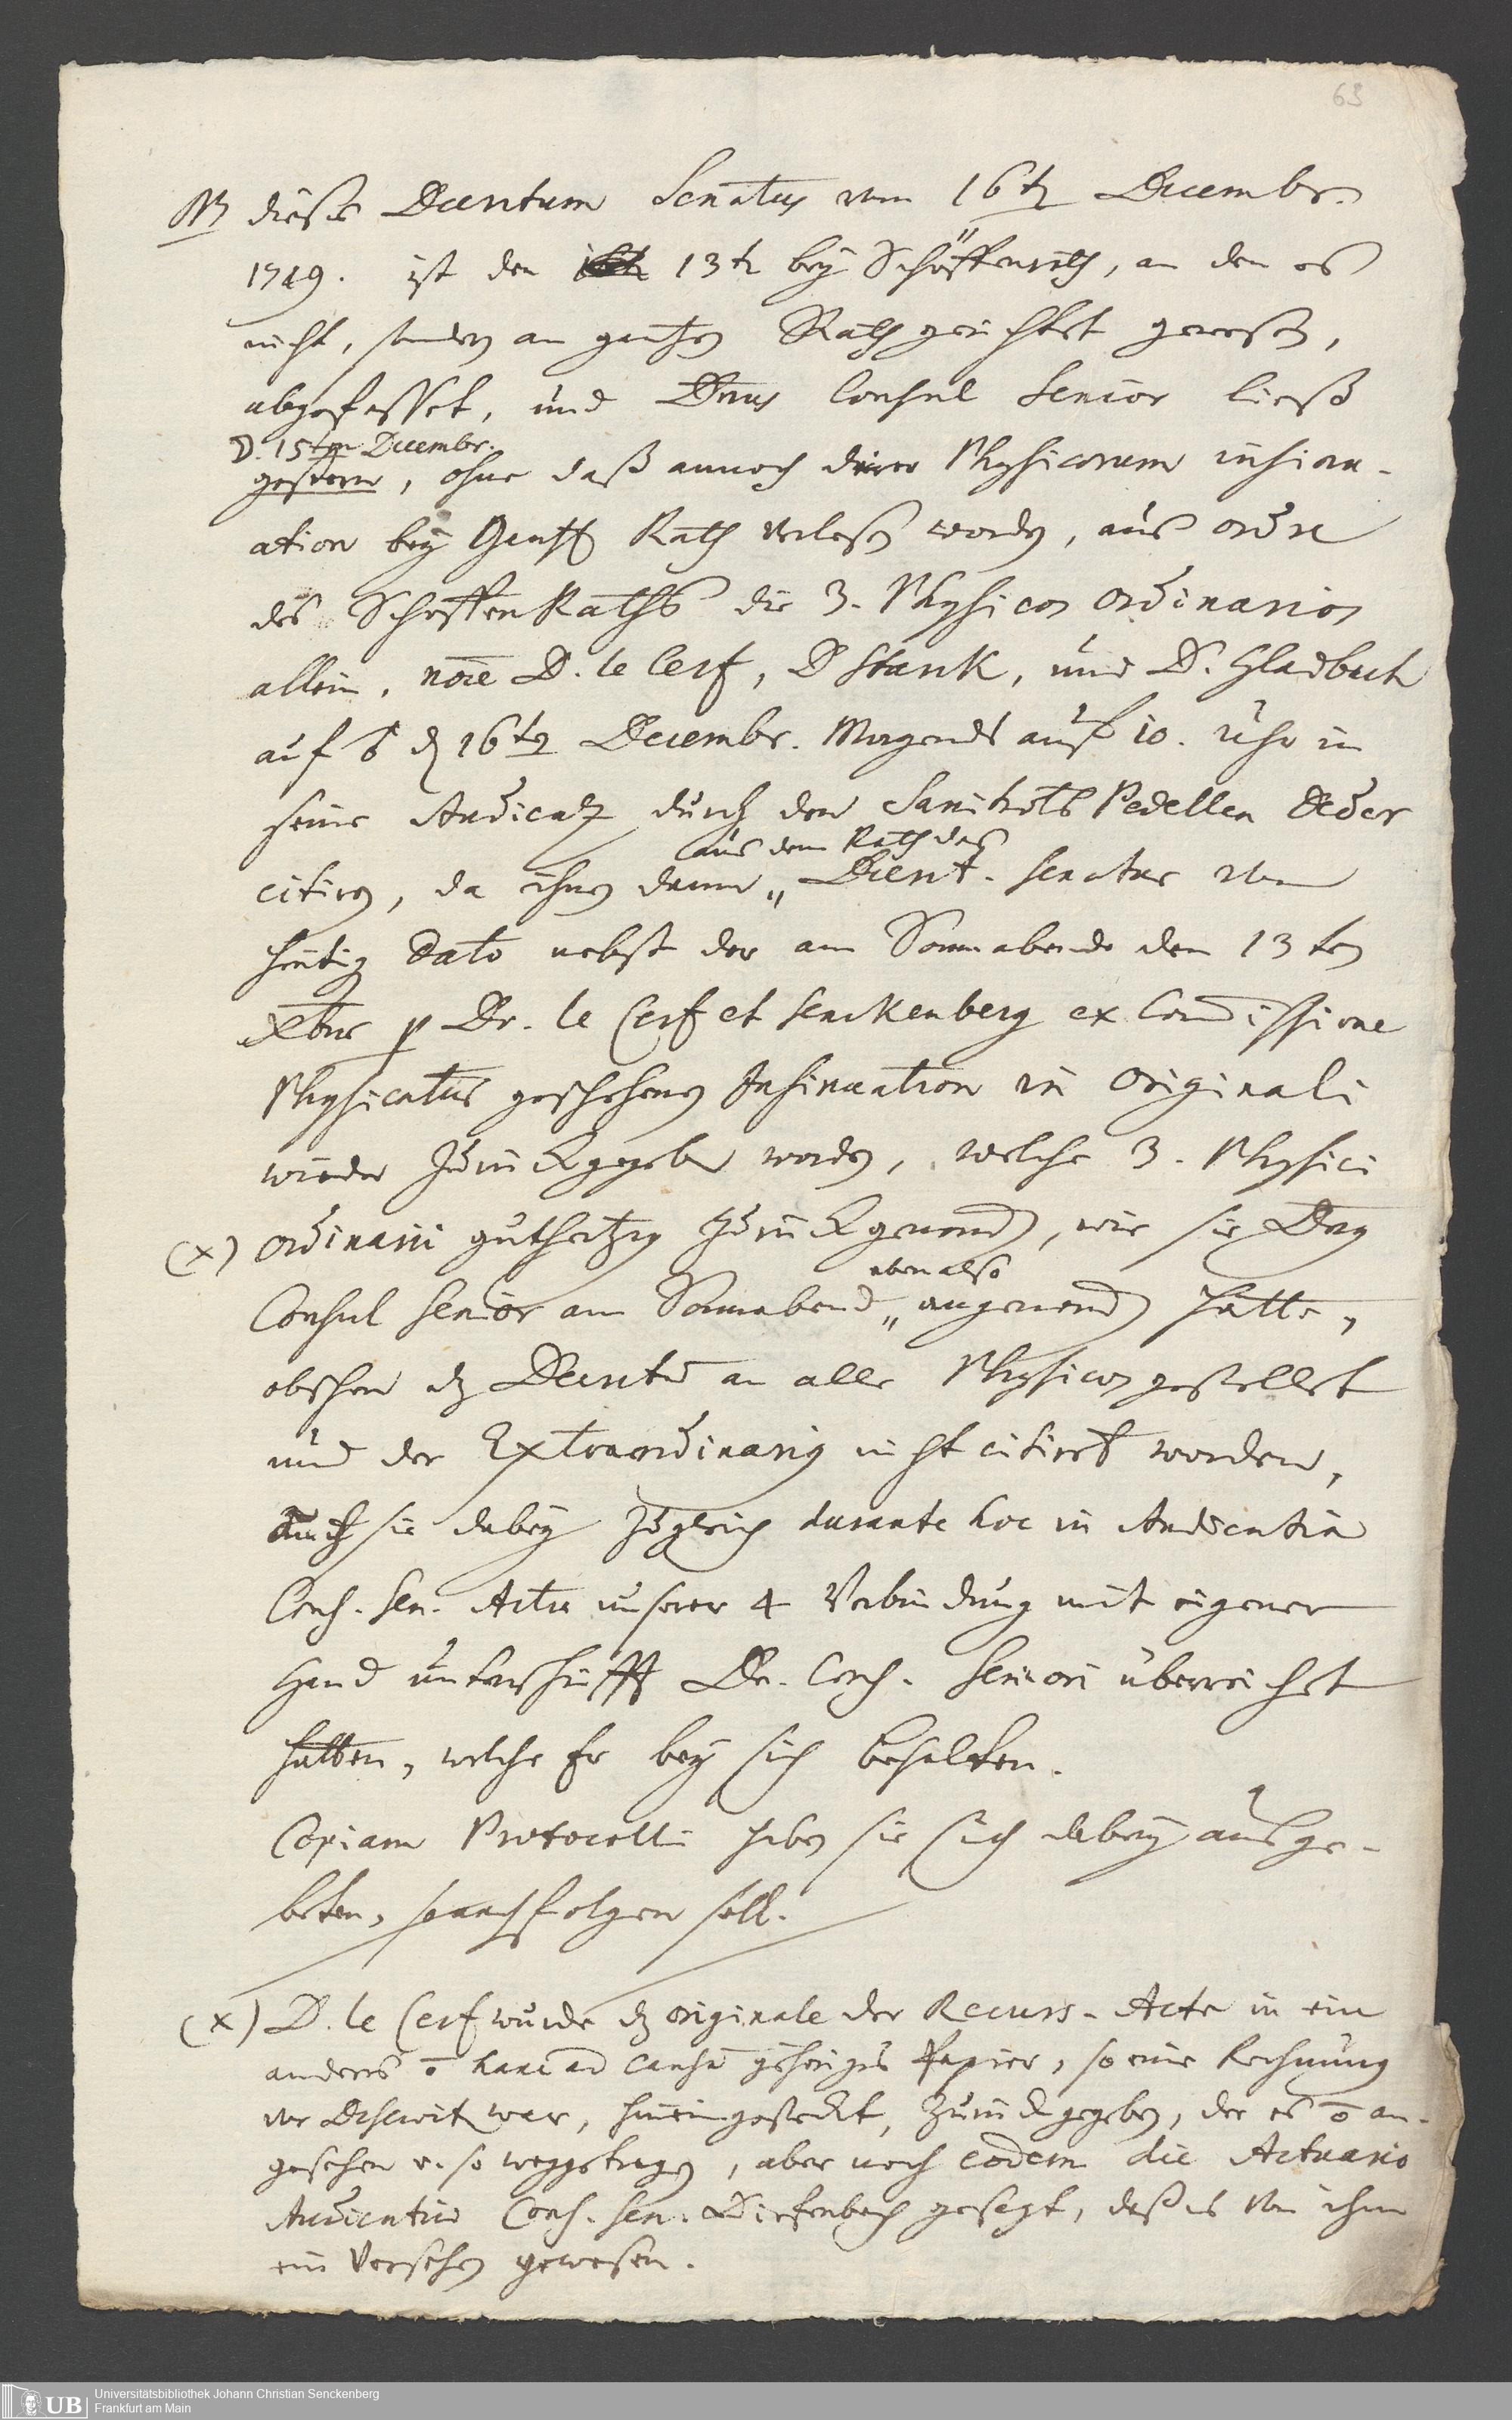 63
NB dieses Decretum Senatus vom 16th Decembr.
1749. ist den 13th bey Schöffenrath, an den es
nicht, sondern an gantzen Rath gerichtet gewesen,
abgefasset, und Dnus Consul Senior ließ
d. 15ten Decembr.
gestern, ohne daß annoch derer Physicorum insinu-
ation bey Gantz Rath verlesen worden, aus ordre
des Schöffen Raths die 3. Physicos ordinarios
allein, noie D. le Cerf, D Stark, und D. Gladbach
auf d 16ten Decembr. Morgends auf 10. Uhr in
seine Audienz durch den Sanitäts Pedellen Oeder
aus dem Rath das
citiren, da ihnen dann „ Decret. Senatus vom
heutig dato nebst der am Sonnabende den 13ten
Xbris p Dr. le Cerf et Senckenberg ex Commissione
Physicatus geschehenen Insinuation in Originali
wieder zurückgegeben worden, welche 3. Physici
(x) ordinarii gutherzig zurückgenomen, wie sie Dnus
eben also
Consul Senior am Sonnabend „ angenomen hatte,
obschon dz Decretum an alle Physicos gestellet
und der Extraordinarius nicht citiret worden,
Auch sie dabey zugleich durante hoc in Audientia
Cons. Sen. Actu unserer 4 Verbindung mit eigener
Hand unterschrifft Dn. Cons. Seniori überreichet
hatten, welche Er bey sich behalten.
Copiam Protocolli haben sie sich dabey ausge-
beten, so auch folgen soll.
(x) D. le Cerf wurde dz originale der Recurs-Acte in ein
anders õ hanc ad causam gehöriges Papier, so eine Rechnung
war, hineingesteckt, zurückgegeben, der es õ an-
gesehen u. so weggetragen, aber noch eodem die Actuario
Audientiae Cons. Sen. Diefenbach gesagt, daß es von ihm
ein Versehen gewesen.
UB Universitätsbibliothek Johann Christian Senckenberg
Frankfurt am Main